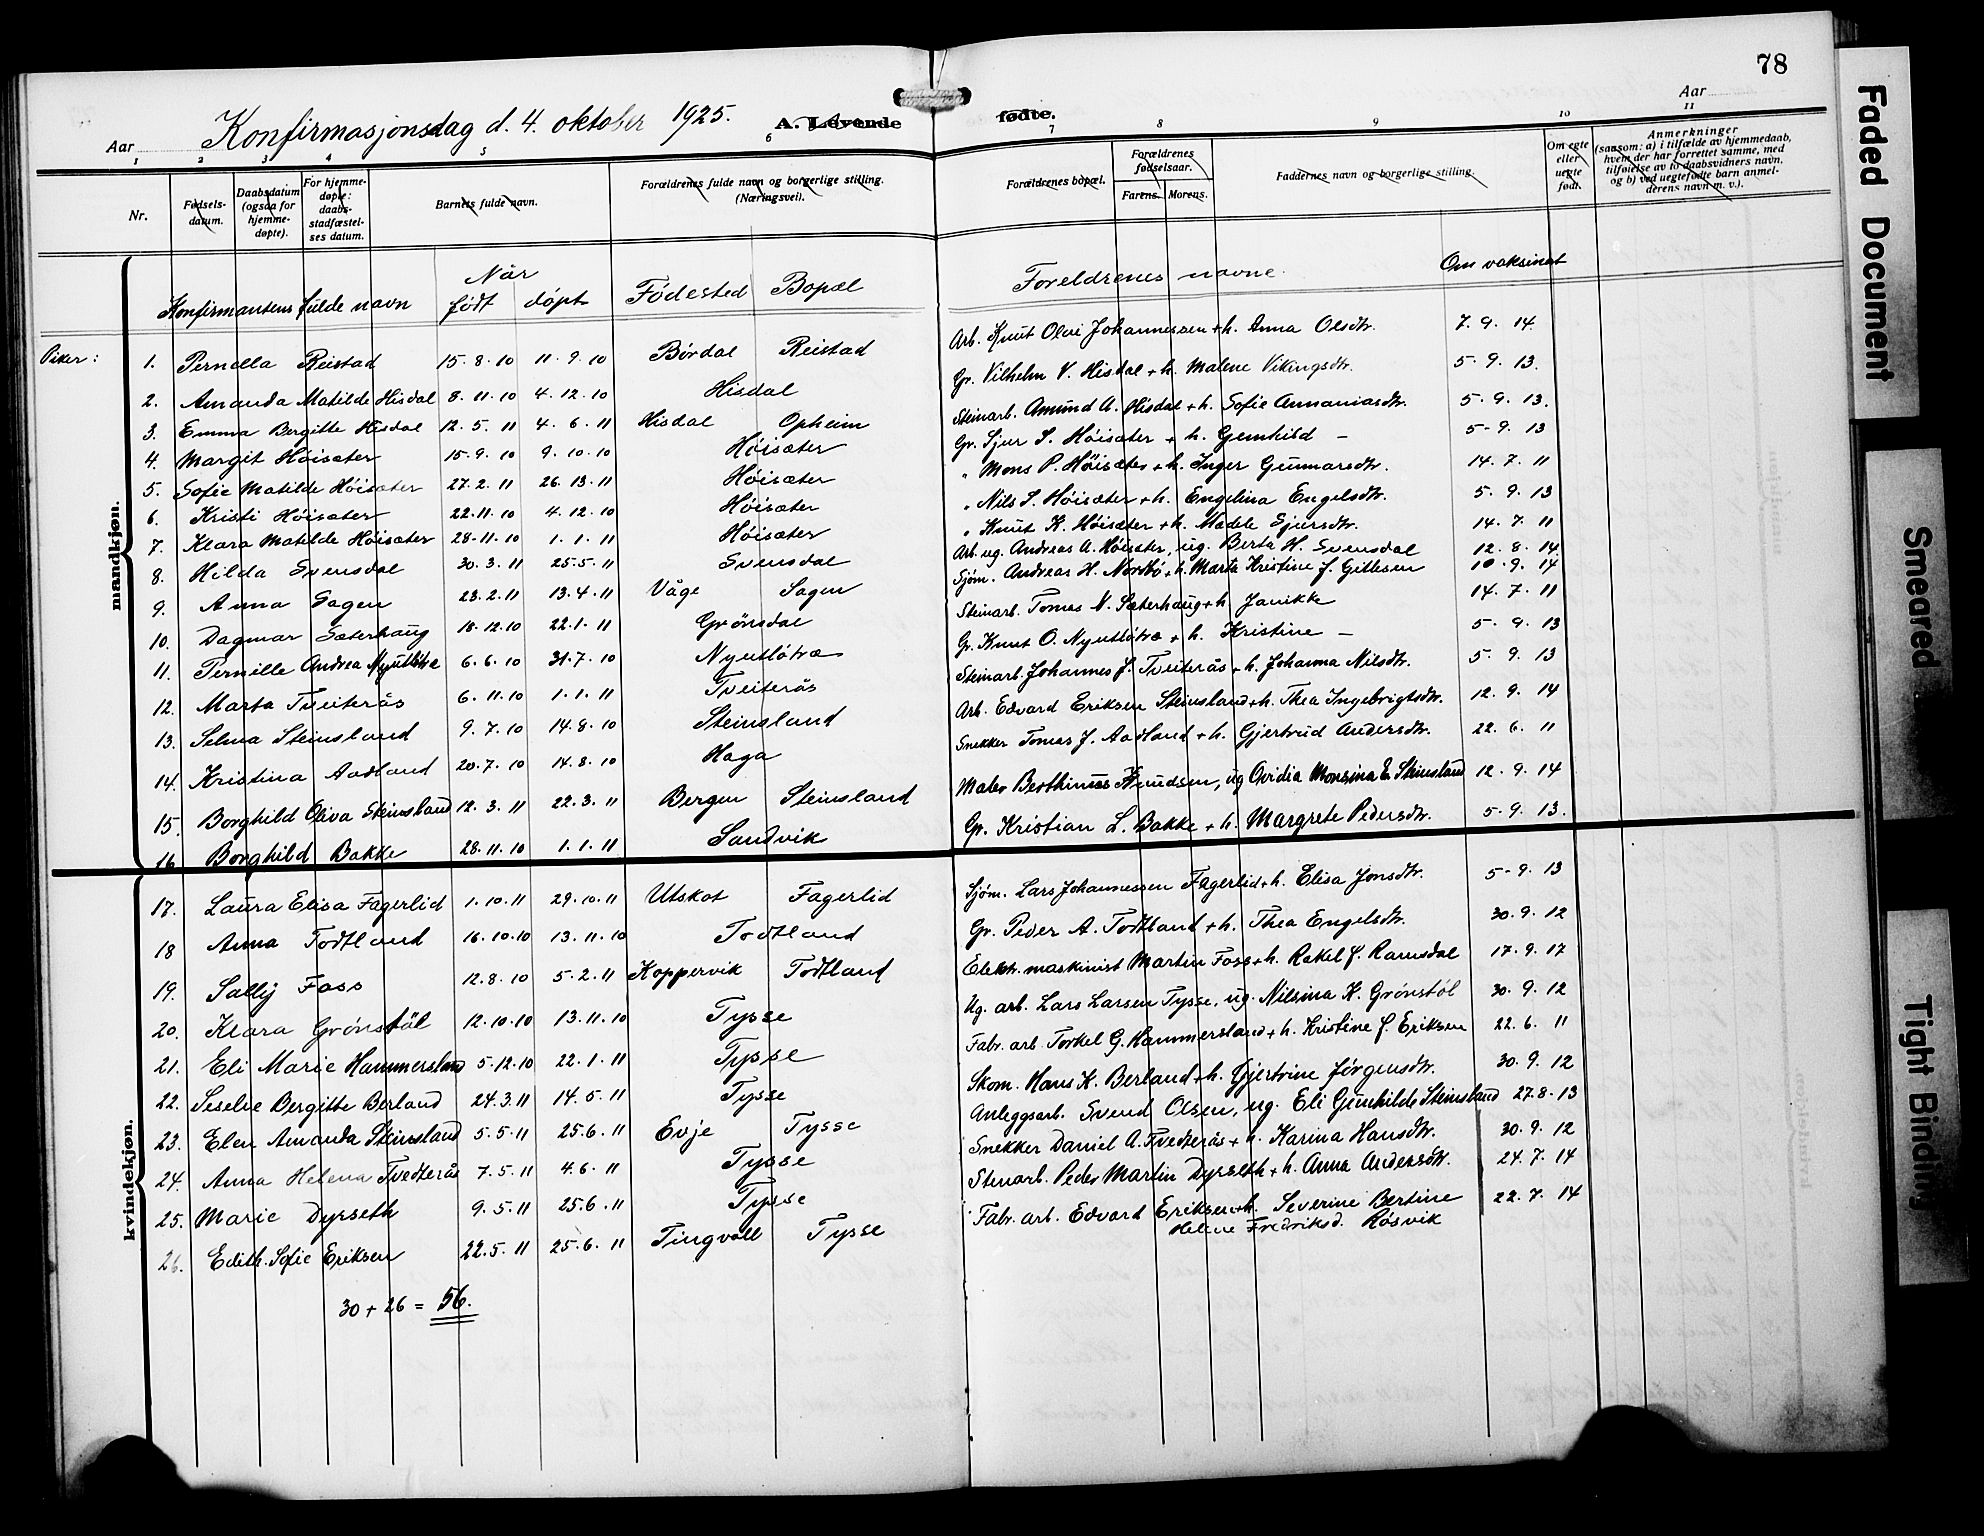 78
Konfirmasjonsdag d. 4. oktober 1925.
A. Levende fødte.
Aar
Aar
1 2 3 4 5 6 7 8 9 10 11
Nr.
Fødsels-datum.
Daabsdatum (ogsaa for hjemme-døpte).
For hjemme-døpte: daabs-stadfæstel-ses datum.
Barnets fulde navn.
Forældrenes fulde navn og borgerlige stilling. (Næringsvei).
Forældrenes bopæl.
Forældrenes fødselsaar.
Farens. Morens.
Faddernes navn og borgerlige stilling.
Om egte eller uegte født.
Anmerkninger
(saasom: a) i tilfælde av hjemmedaab,
hvem der har forrettet samme, med
tilføielse av to daabsvidners navn,
og b) ved uegtefødte barn anmel-
derens navn m. v.).
mandkjøn.
kvindekjøn.
Konfirmantens fulde navn Når født døpt Fødested Bopæl Foreldrenes navne Om vaksinert
Piker:
1. Pernella Reistad 15.8.10 11.9.10 Børdal Reistad Arb. Knut Olai Johannessen + h. Anna Olsdtr. 7.9.14.
2. Amanda Matilde Hisdal 8.11.10 4.12.10 Hisdal Gr. Vilhelm V. Hisdal + h. Malene Vikingsdtr. 5.9.13.
3. Emma Bergitte Hisdal 12.5.11 4.6.11 Hisdal Opheim Steinarb. Amund A. Hisdal + h. Sofie Annaniasdtr. 5.9.13.
4. Margit Höisæter 15.9.10 9.10.10 Höisæter Gr. Sjur S. Höisæter + h. Gemhild - 5-9.13
5. Sofie Matilde Höisæter 27.2.11 26.13.11 Höisæter " Mons P. Höisæter + h. Inger Gunnarsdtr. 14.7.11
6. Kristi Höisæter 22.11.10 4.12.10 Höisæter " Nils S. Höisæter + h. Engelina Engelsdtr. 5.9.13
7. Klara Matilde Höisæter 28.11.10 1.1.11 Höisæter " Knut K. Höisæter + h. Madele Sjursdtr. 14.7.11
8. Hilda Svensdal 30.3.11 25.5.11 Svensdal Arb. ug. Andreas A. Höisæter, ug. Berta H. Svensdal 12.8.14
9. Anna Sagen 23.2.11 13.4.11 Våge Sagen Sjøm. Andreas H. Nordbö + h. Marta Kristine J. Gillesen 10.9.14
10. Dagmar Sæterhaug 18.12.10 22.1.11 Grönsdal Steinarb. Tomas N. Sæterhaug + h Janikke 14.7.11
11. Pernille Andrea Nyutlötræ 6.6.10 31.7.10 Nyutlötræ Gr. Knut O. Nyutlötræ + h. Kristine - 5.9.13
12. Marta Tveiterås 6.11.10 1.1.11 Tveiterås Steinarb. Johannes J. Tveiterås + h. Johanna Nilsdtr. 5.9.13
13. Selma Steinsland 9.7.10 14.8.10 Steinsland Arb. Edvard Eriksen Steinsland + h. Thea Ingebrigtsdtr. 12.9.14
14. Kristina Aadland 20.7.10 14.8.10 Haga Snekker Tomas J. Aadland + h. Gjertrud Andersdtr. 22.6.11
15. Borghild Oliva Steinsland 12.3.11 22.3.11 Bergen Steinsland Maler Berthinus Knudsen, ug Ovidia Monsina E. Steinsland 12.9.14
16 Borghild Bakke 28.11.10 1.1.11 Sandvik Gr. Kristian L. Bakke + h. Margrete Pedersdtr. 5.9.13.
17. Laura Elisa Fagerlid 1.10.11 29.10.11 Utskot Fagerlid Sjøm. Lars Johannessen Fagerlid + h. Elisa Jonsdtr. 5-9.13
18 Anna Todtland 16.10.10 13.11.10 Todtland Gr. Peder A. Todtland + h. Thea Engelsdtr. 30.9.12
19. Sally Foss 12.8.10 5.2.11 Koppervik Todtland Elektr. maskinist Martin Foss + h. Rakel J. Ramsdal 17.9.17
20. Klara Grönstöl 12.10.10 13.11.10 Tysse Ug. arb. Lars Larsen Tysse, ug. Nilsina K. Grönstöl 30.9.12
21. Eli Marie Hammersland 5.12.10 22.1.11 Tysse Fabr. arb. Torkel G. Hammersland + h. Kristine J. Eriksen 22.6.11
22. Seselie Bergitte Berland 24.3.11 14.5.11 Tysse Skom. Hans K. Berland + h. Gjertrine Jörgensdtr. 30.9.12
23. Elen Amanda Steinsland 5.5.11 25.6.11 Evje Tysse Anleggsarb. Svend Olsen, ug. Eli Gunhilde Steinsland 27.8.13
24. Anna Helena Tvedterås 7.5.11 4.6.11 Tysse Snekker Daniel A. Tvedterås + h. Karina Hansdtr. 30.9.12
25. Marie Dyrseth 9.5.11 25.6.11 Tysse Stenarb. Peder Martin Dyrseth + h. Anna Andersdtr. 24.7.14
26. Edith Sofie Eriksen 22.5.11 25.6.11 Tingvoll Tysse Fabr. arb. Edvard Eriksen + h. Severine Bertine 22.7.14
Helene Fredriksd. Rösvik
30 + 26 = 56.
Faded Document
Smeared
Tight Binding